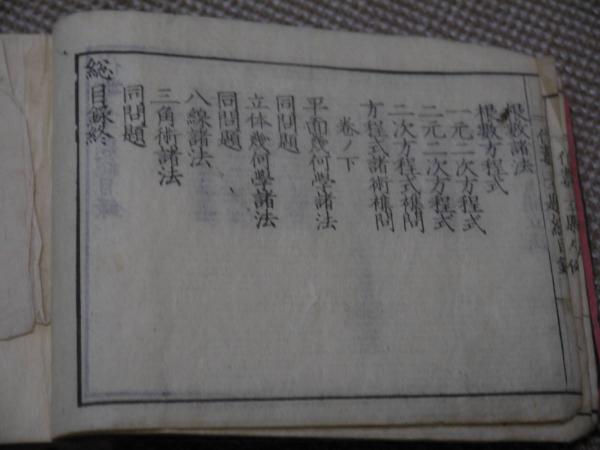 根数諸法
根数方程式
一元二次方程式
二元二次方程式
二次方程式襍問
方程式諸術襍問
巻ノ下
平面幾何学諸法
同問題
立体幾何学諸法
同問題
八線諸法
三角術諸法
同問題
総目録終